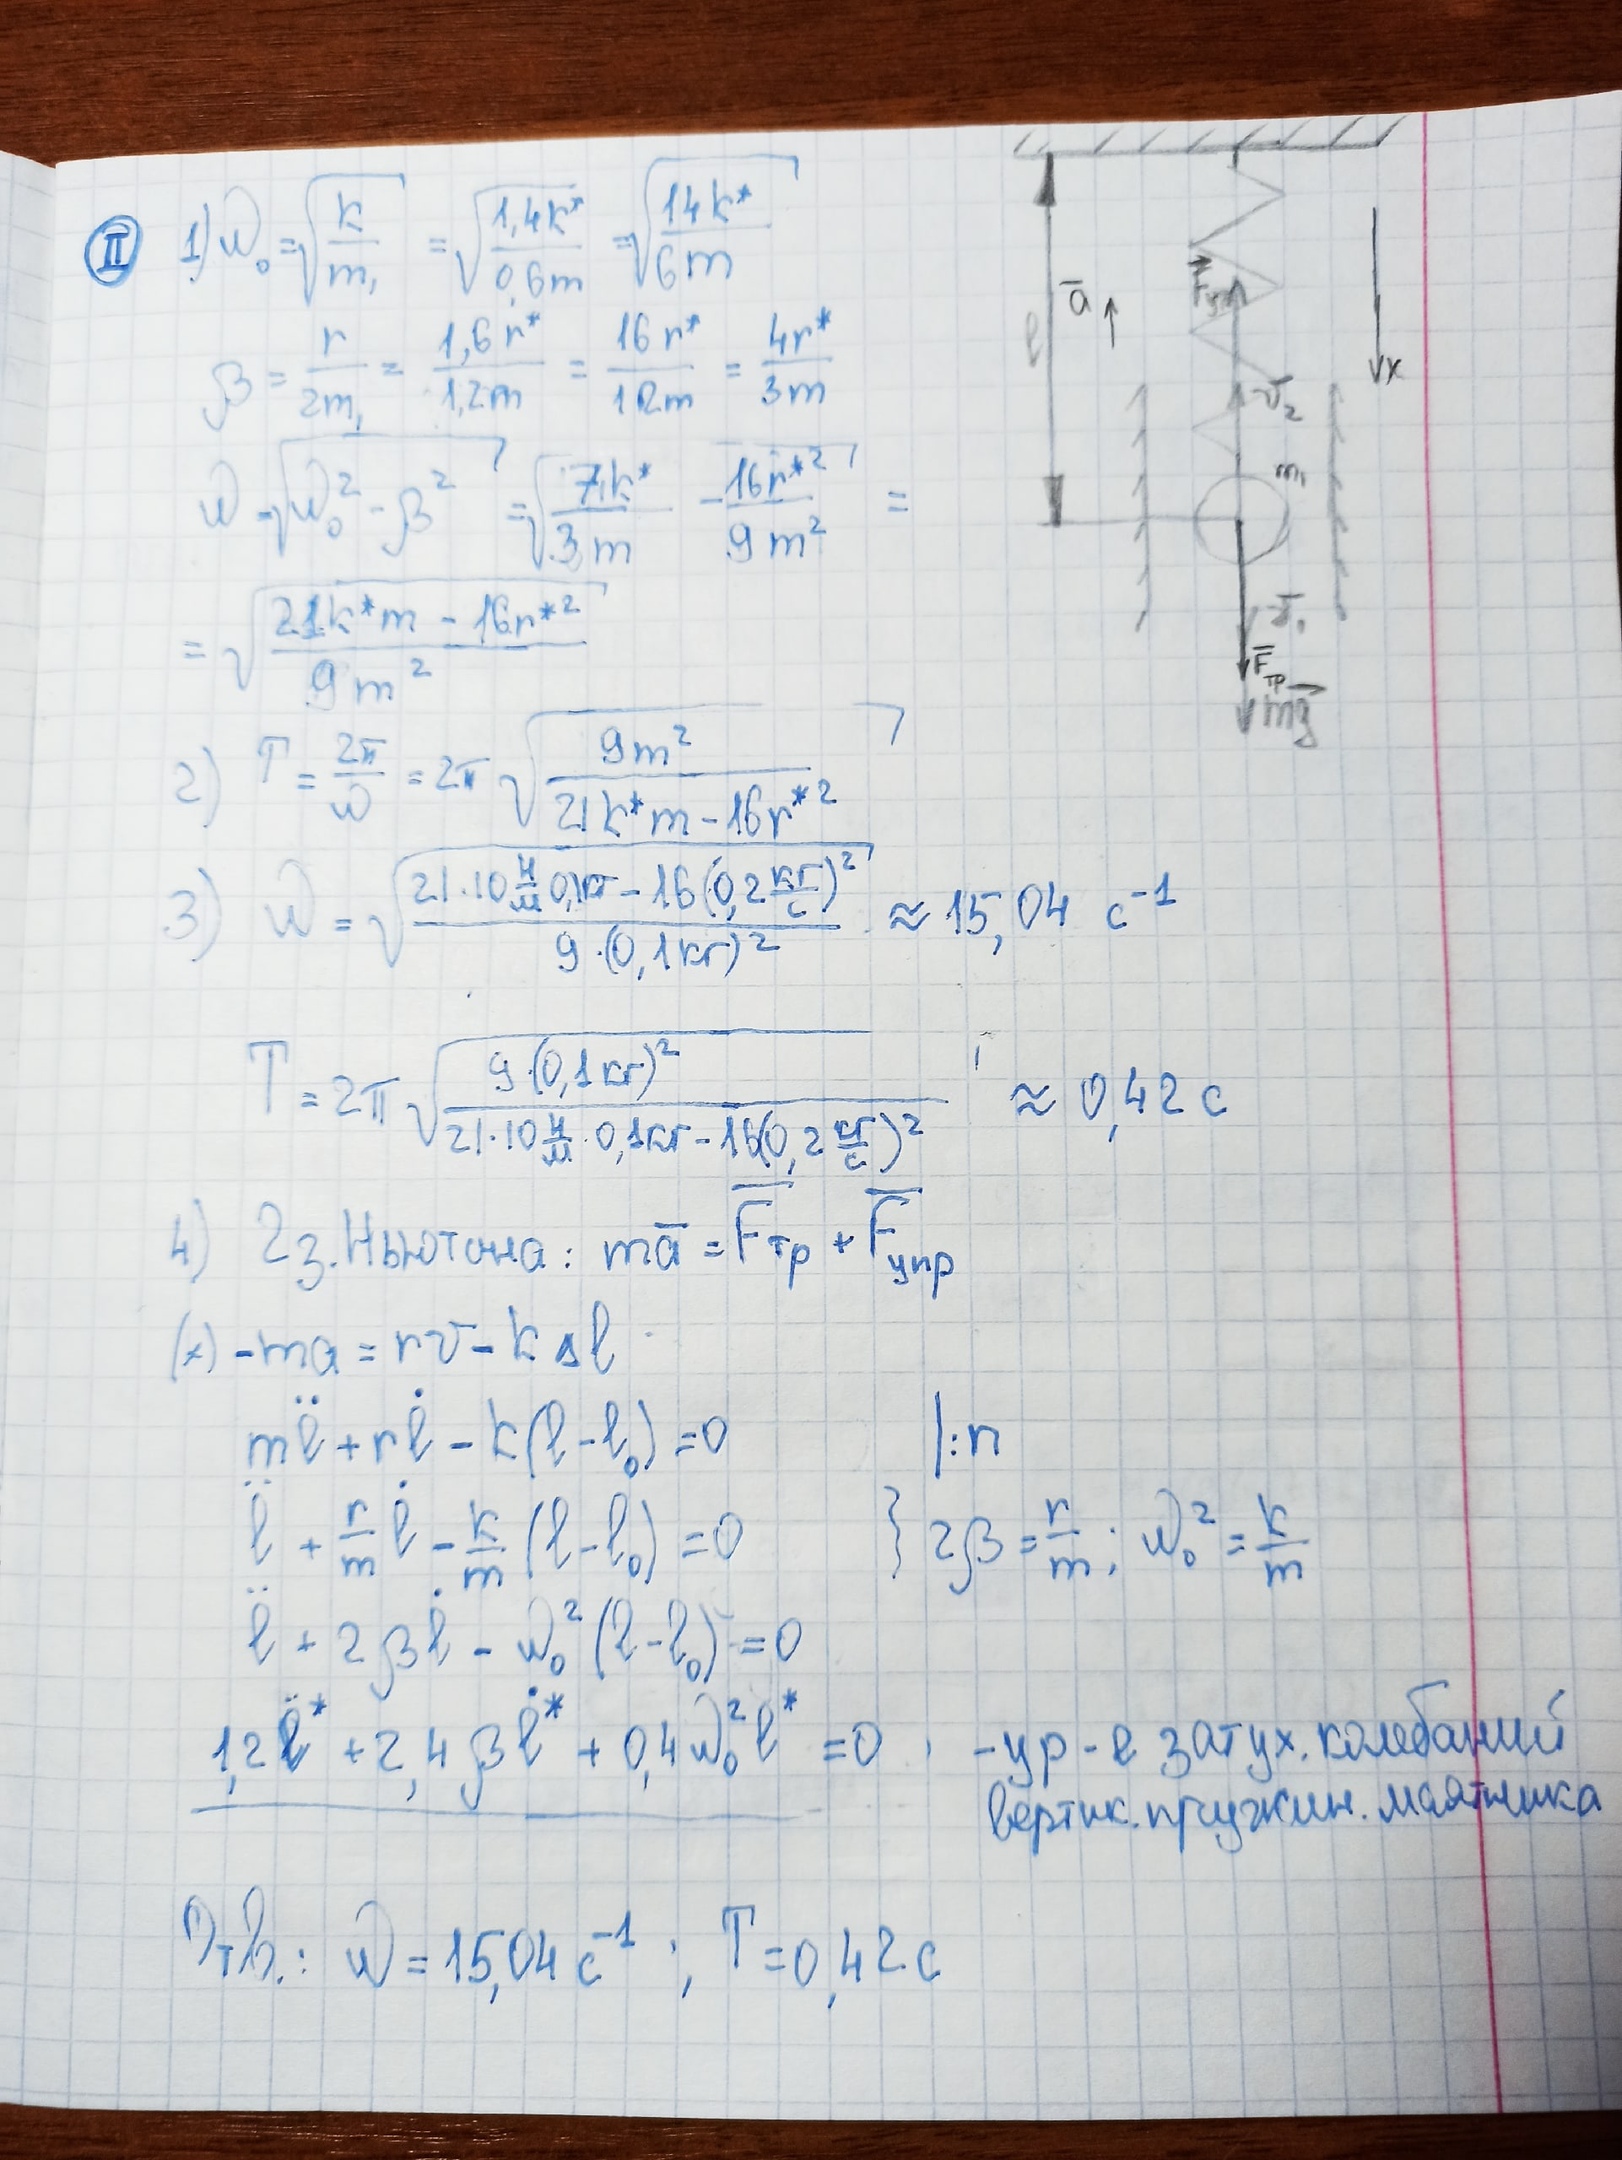 II 1) ω₀ = √(k/m₁) = √(1,4k*/0,6m) = √(14k*/6m)
β = r/2m₁ = 1,6r*/1,2m = 16r*/12m = 4r*/3m
ω = √(ω₀² - β²) = √(7k*/3m - 16r*²/9m²) =
= √((21k*m - 16r*²)/9m²)
2) T = 2π/ω = 2π √(9m²/(21k*m - 16r*²))
3) ω = √((21·10 Н/м 0,1кг - 16(0,2 кг/с)²)/(9·(0,1кг)²)) ≈ 15,04 с⁻¹
T = 2π √(9·(0,1кг)²/(21·10 Н/м · 0,1кг - 16(0,2 кг/с)²)) ≈ 0,42 с
4) 2 з. Ньютона: ma̅ = F̅тр + F̅упр
(x) -ma = rv - kΔl
ml̈ + rl̇ - k(l - l₀) = 0 |:n
l̈ + r/m l̇ - k/m (l - l₀) = 0 } 2β = r/m; ω₀² = k/m
l̈ + 2βl̇ - ω₀²(l - l₀) = 0
1,2l̈* + 2,4βl̇* + 0,4ω₀²l* = 0 - ур-е затух. колебаний
вертик. пружин. маятника
Отв.: ω = 15,04 с⁻¹; T = 0,42 с
l
a̅
Fуп
x
v̅₂
m₁
v̅₁
F̅тр
mg⃗